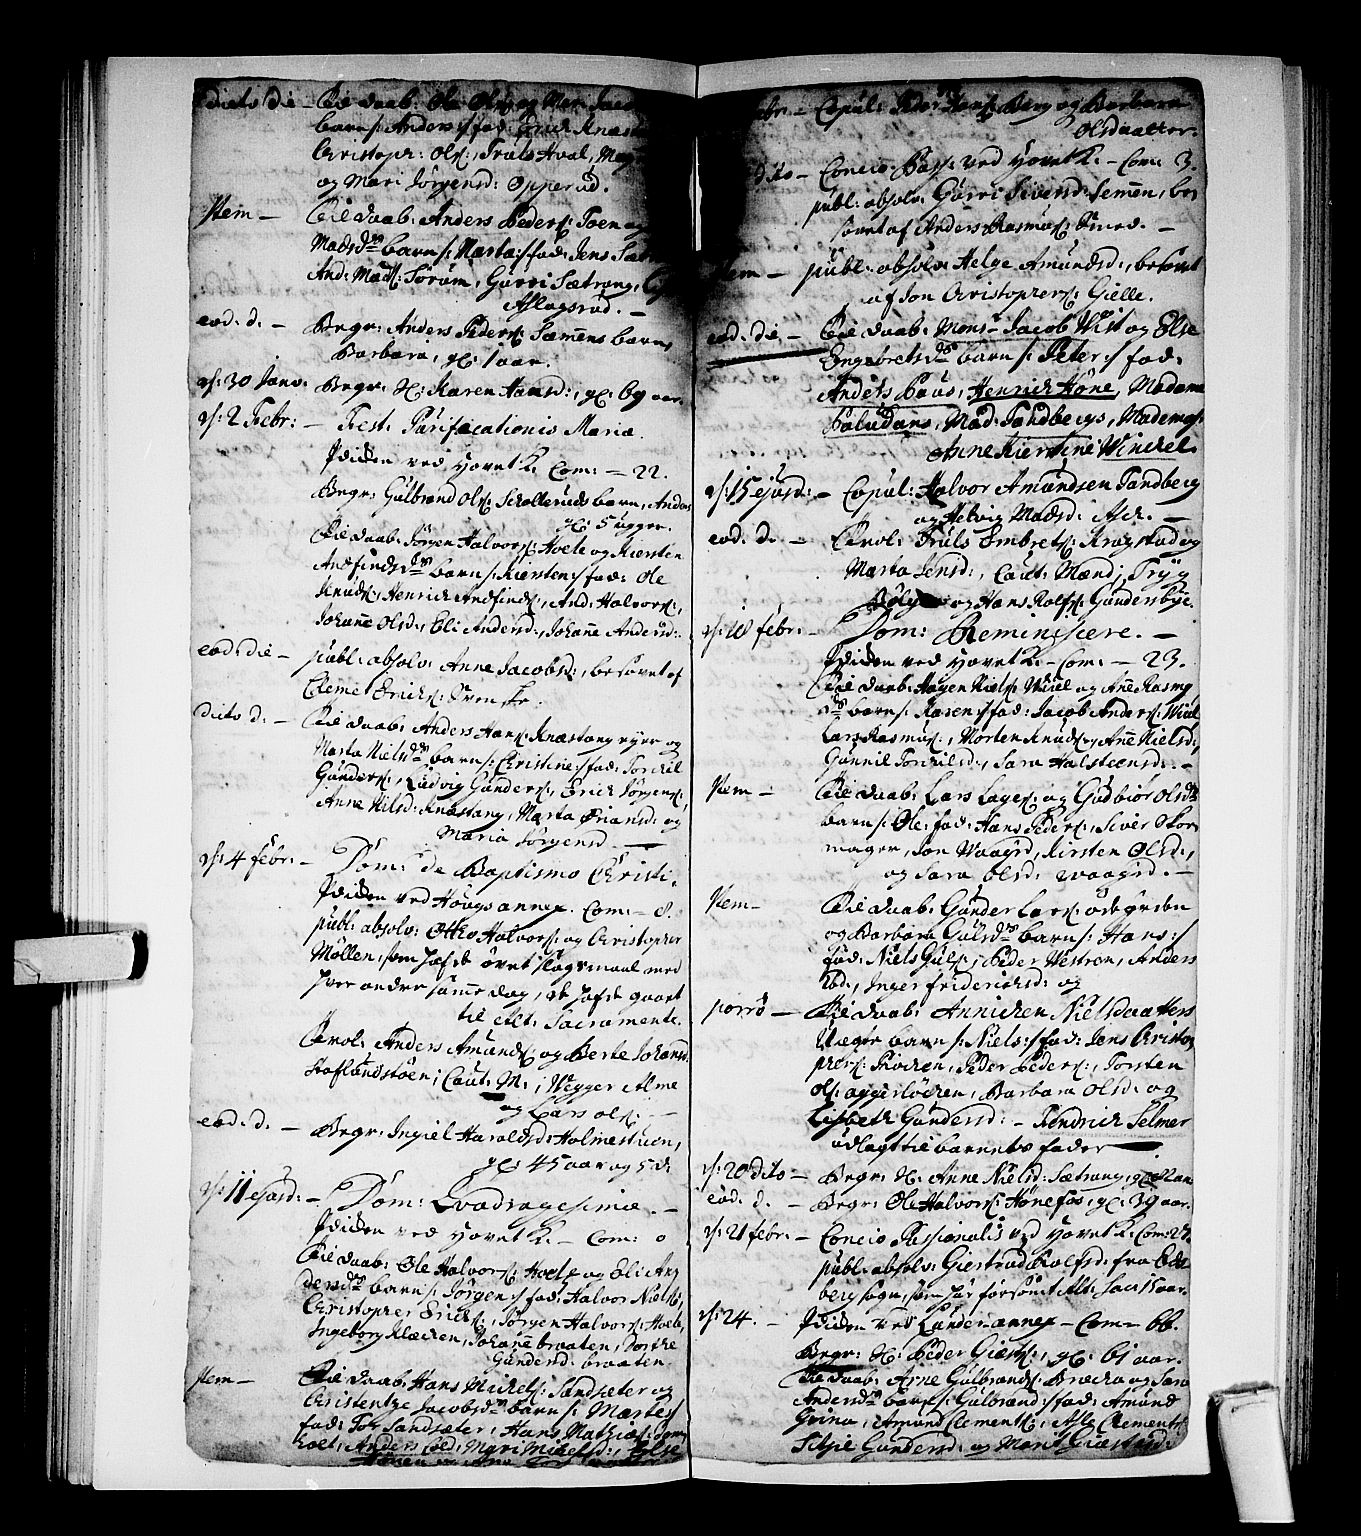 dicto die – Ecl: daab: Ole Ols: og Mari Jac
barn /: Anders :/ fad: Erich Knæst
Christopr: Ols:, Truls Hval, Mag
og Mari Jörgensd: Opperud.
Item – Ecl: daab: Anders Peders: Toen og
Madsdrs barn /: Marta :/ fad: Jens Sæt
And: Mads: Sörum, Gurri Sætrang,
Aslagsrud. –
eod: d: – Begr: Anders Peders: Semmens barn,
Barbara, gl: 1 aar.
d: 30 Janv: Begr: H: Karen Hansd:, gl: 69 aar.
d: 2 Febr: – Fest: Purificationis Mariæ.
Prædiken ved Hovet K: Com: – 22.
Begr: Gulbrand Ols: Schollerud barn, Anders
gl: 5 uger.
Ecl: daab: Jörgen Halvors: Hvete og Kiersten
Andfindsdrs barn /: Kiersten :/ fad: Ole
Knuds:, Henrich Andfinds:, And: Halvors:,
Johanne Olsd:, Eli Andersd:, Johanne Andersd:.
eod: die – publ: absolv: Anne Jacobsd:, besovet af
Clemet Erichs: Svenske.
dicto d: – Ecl: daab: Anders Hans: Knæstang eyer og
Marta Nielsdrs barn /: Christine :/ fad: Torchil
Gunders:, Ludvig Gunders:, Erich Jörgens:,
Anne Nilsd: Knæstang, Marta Briansd: og
Maria Jörgensd: –
d: 4 febr: – Dom: de Baptismo Christi.
Prædiken ved Hougs annex. Com: – 8.
publ: absolv: Otto Halvors: og Christopher
Möllen, som hafde övet slagsmaal med
hver andre samme dag, de hafde gaaet
til Alt: Sacramente.
Trol: Anders Amunds: og Berte Johansd:
Hoflandstöen; Caut: M:; Vegger Alme
og Lars Ols: –
eod: d: – Begr: Ingiel Haraldsd: Holmestuen,
gl: 45 aar og 5 d:
d: 11 ejusd: – Dom: Qvadragesimæ. –
Prædiken ved Hovet K: – Com: 0
Ecl: daab: Ole Halvors: Hvete og Eli An
dersdrs barn /: Jörgen :/ fad: Halvor Niels:,
Christopher Erichs:, Jörgen Halvors: Hvete,
Ingeborg Klæcken, Johanne braaten, Dorthe
Gundersd: braaten.
Item – Ecl: daab: Hans Michels: Sandsæter og
Christentze Jacobsdrs barn /: Marte :/
fad: Tor Sandsæter, Hans Mathias:
Anders ibid:, Mari Michelsd:, Else
febr: – Copul: Peder Hans: Berg og Barbara
Olsdaatter:
dito – Concio Pass: ved Hovet K: – Com: 3.
publ: absolv: Gurri Siversd: Semmen, be
sovet af Anders Rasmus: Smed. –
Item – publ: absolv: Helge Amundsd:, besovet
af Jon Christophers: Gielle.
eod: die – Ecl: daab: Monsr Jacob Wist og Else
Engebretsdrs barn /: Peter :/ fad:
Anders Paus, Henrich Höne, Madame
Paludans, Mad: Tandbergs, Mademois:
Anne Kierstine Winckel
d: 15 ejusd: – Copul: Halvor Amundsen Tandberg
og Helvig Madsd: Ask. –
eod: d: – Trol: Truls Embrets: Kragstad og
Marta Jensd:, Caut: Mændj Tryg
og Hans Rolfs: Gundersbye.
d: 18 febr: – Dom: Reminiscere. –
Prædiken ved Hovet K: – Com: – 23.
Ecl: daab: Hagen Niels: Wiül og Anne Rasmus
drs barn /: Karen :/ fad: Jacob Anders: Wiül
Lars Rasmus:, Morten Knuds: Anne Nielsd:,
Gunnil Torchilsd:, Sara Halsteensd: –
Item – Ecl: daab: Lars Lages: og Gudbiör Olsdrs
barn /: Ole :/ fad: Hans Peders:, Siver Skor
mager, Jon Waagrd, Kirsten Olsd:,
og Sara Olsd: Waagrd. –
Item – Ecl: daab: Gunder Lars: ödegaarden
og Barbara Gulsdrs barn /: Hans :/
fad: Niels Guls:, Peder Vestren, Anders
ibd:, Inger friderichsd: og
porrò – Ecl: daab: Annichen Nielsdaatters
Uægte barn /: Niels :/ fad: Jens Christo
phers: Fivchen, Peder Peders:, Torsten
Ols: aggerlöcken, Barbara Olsd: og
Lisbeth Gundersd: – Fendrich Selmer
udlagt til barnets fader –
d: 20 dito – Begr: H: Anne Nielsd: Sætrang, gl:
eod: d. – Begr: Ole Halvors: Hönefos, gl: 39 aar.
d: 21 febr: – Concio Passionalis ved Hovet K: Com: 27.
publ: absolv: Giertrud Rolfsd: fra Eds
berg sogn, som har forsömt Alt: Sac: 15 aar.
d: 24. – Prædiken ved Lunder annex – Com – 66.
Begr: H: Peder Giests:, gl: 61 aar.
Ecl: daab: Arne Gulbrands: Bræcka og Sara
Andersdrs barn /: Gulbrand :/ fad: Amund
Grina, Amund Clements:, Alle Clements:
Siljie Gundersd: og Marit Giæstsd: